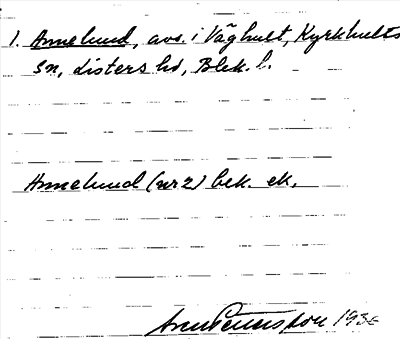 1. Annelund, avs. i Våghult, Kyrkhults
sn, Listers hd, Blek. l.
Annelund (nr 2) bek. ek.
1936